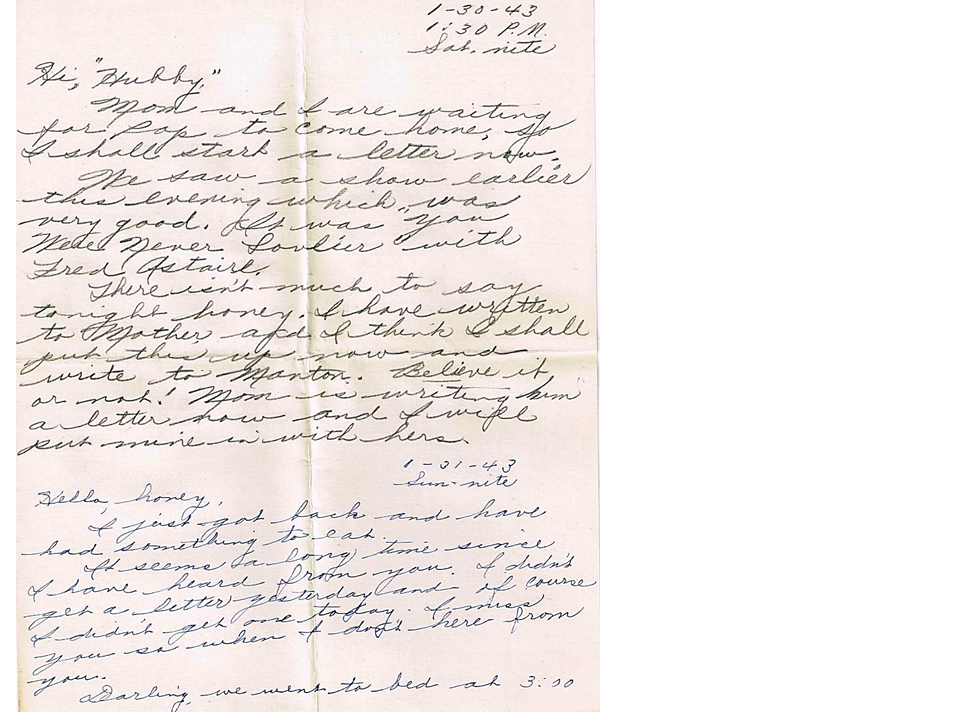 1-30-43
1:30 P.M.
Sat. nite
Hi, "Hubby,"
Mom and I are waiting
for Pop to come home, so
I shall start a letter now.
We saw a show earlier
this evening which was
very good. It was "You
Were Never Lovlier" with
Fred Astaire.
There isn't much to say
tonight honey. I have written
to Mother and I think I shall
put this up now and
write to Manton. Believe it
or not! Mom is writing him
a letter now and I will
put mine in with hers.
1-31-43
Sun-nite
Hello, honey,
I just got back and have
had something to eat.
It seems a long time since
I have heard from you. I didn't
get a letter yesterday and of course
I didn't get one today. I miss
you so when I don't here from
you.
Darling, we went to bed at 3:00